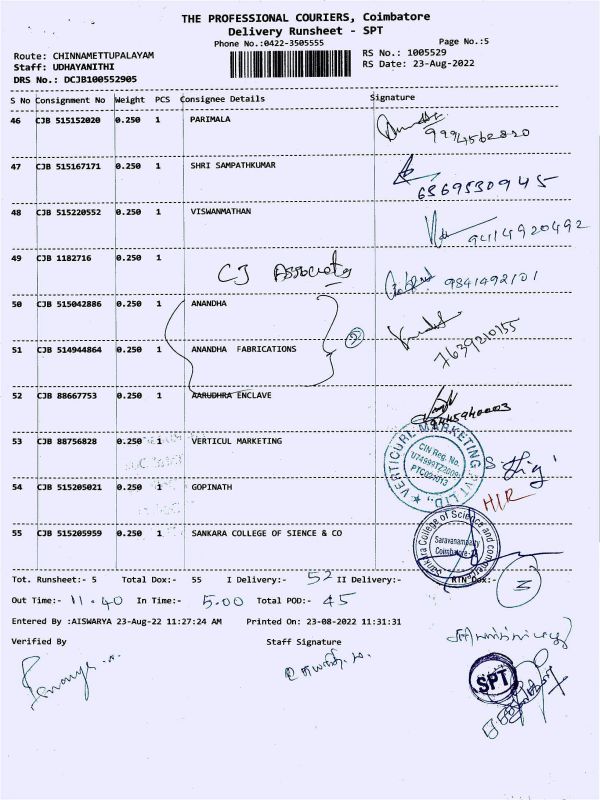 THE PROFESSIONAL COURIERS, Coimbatore
Delivery Runsheet - SPT
Phone No.:0422-3505555
Page No.:5
Route: CHINNAMETTUPALAYAM
RS No.: 1005529
Staff: UDHAYANITHI
RS Date: 23-Aug-2022
DRS No.: DCJB100552905
S No Consignment No Weight PCS Consignee Details Signature
46 CJB 515152020 0.250 1 PARIMALA
9994562820
47 CJB 515167171 0.250 1 SHRI SAMPATHKUMAR
6369530945
48 CJB 515220552 0.250 1 VISWANMATHAN
9414920492
49 CJB 1182716 0.250 1
CJ Associates
9841492101
50 CJB 515042886 0.250 1 ANANDHA
2
51 CJB 514944864 0.250 1 ANANDHA FABRICATIONS
7639210155
52 CJB 88667753 0.250 1 AARUDHRA ENCLAVE
9445940003
53 CJB 88756828 0.250 1 VERTICUL MARKETING
VERTICURL MARKETING PVT LTD.,
CIN Reg. No.
54 CJB 515205021 0.250 1 GOPINATH
H/R
55 CJB 515205959 0.250 1 SANKARA COLLEGE OF SIENCE & CO
Sankara College of Science and commerce
Saravanampatty
Coimbatore-
Tot. Runsheet:- 5 Total Dox:- 55 I Delivery:- 52 II Delivery:- RTN Dox:- 3
Out Time:- 11.40 In Time:- 5.00 Total POD:- 45
Entered By :AISWARYA 23-Aug-22 11:27:24 AM Printed On: 23-08-2022 11:31:31
Verified By Staff Signature
SPT